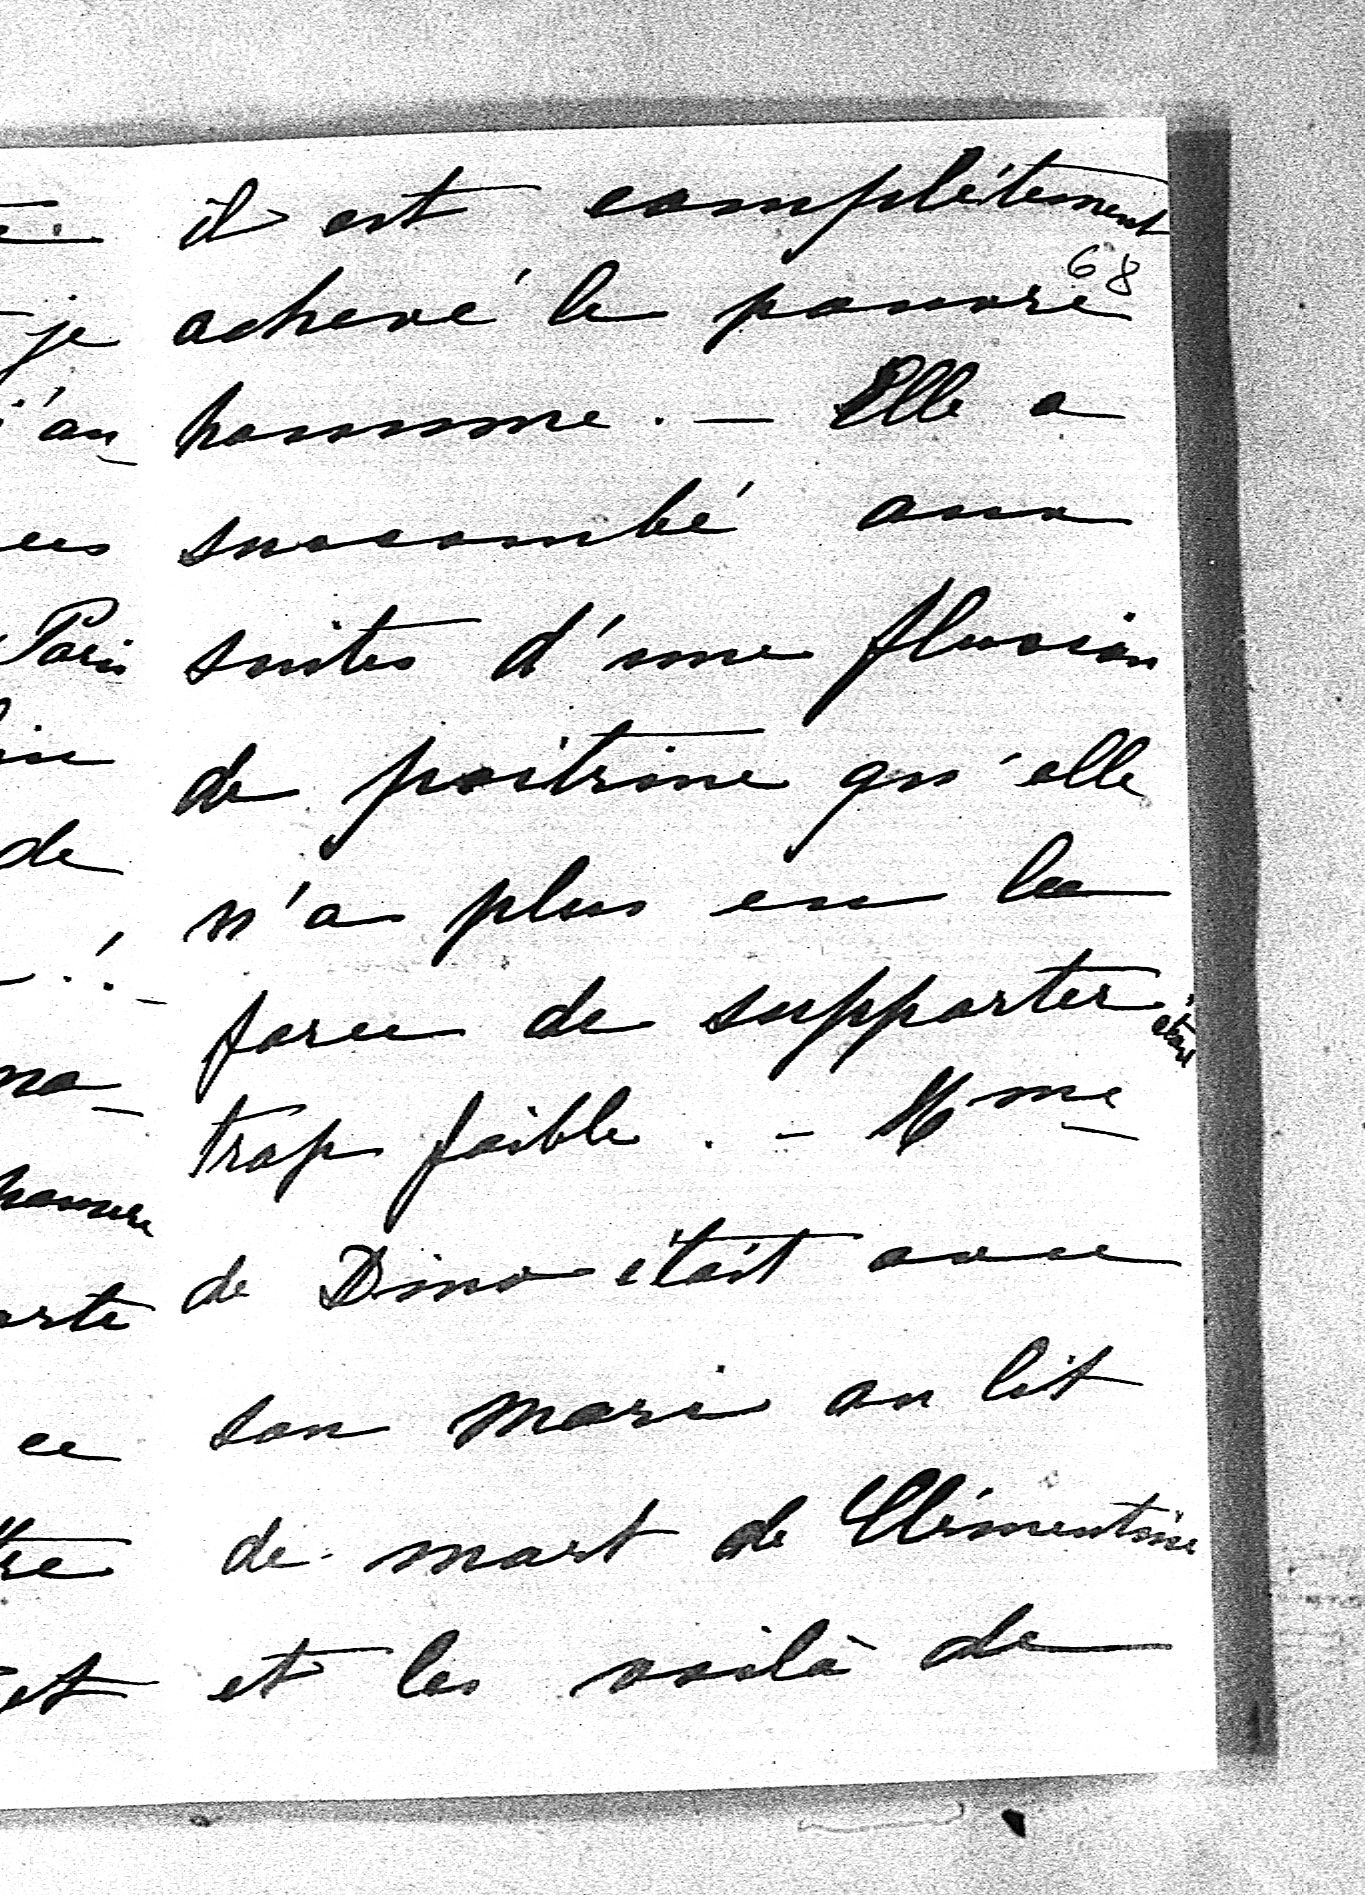 il est complètement
68
achevé le pauvre
homme. — Elle a
succombé aux
suites d'une fluxion
de poitrine qu'elle
n'a plus eu la
force de supporter étant
trop faible. - Mme
de Dino était avec
son mari au lit
de mort de Clémentine
et les voilà de
je
Paris
de
ce
et